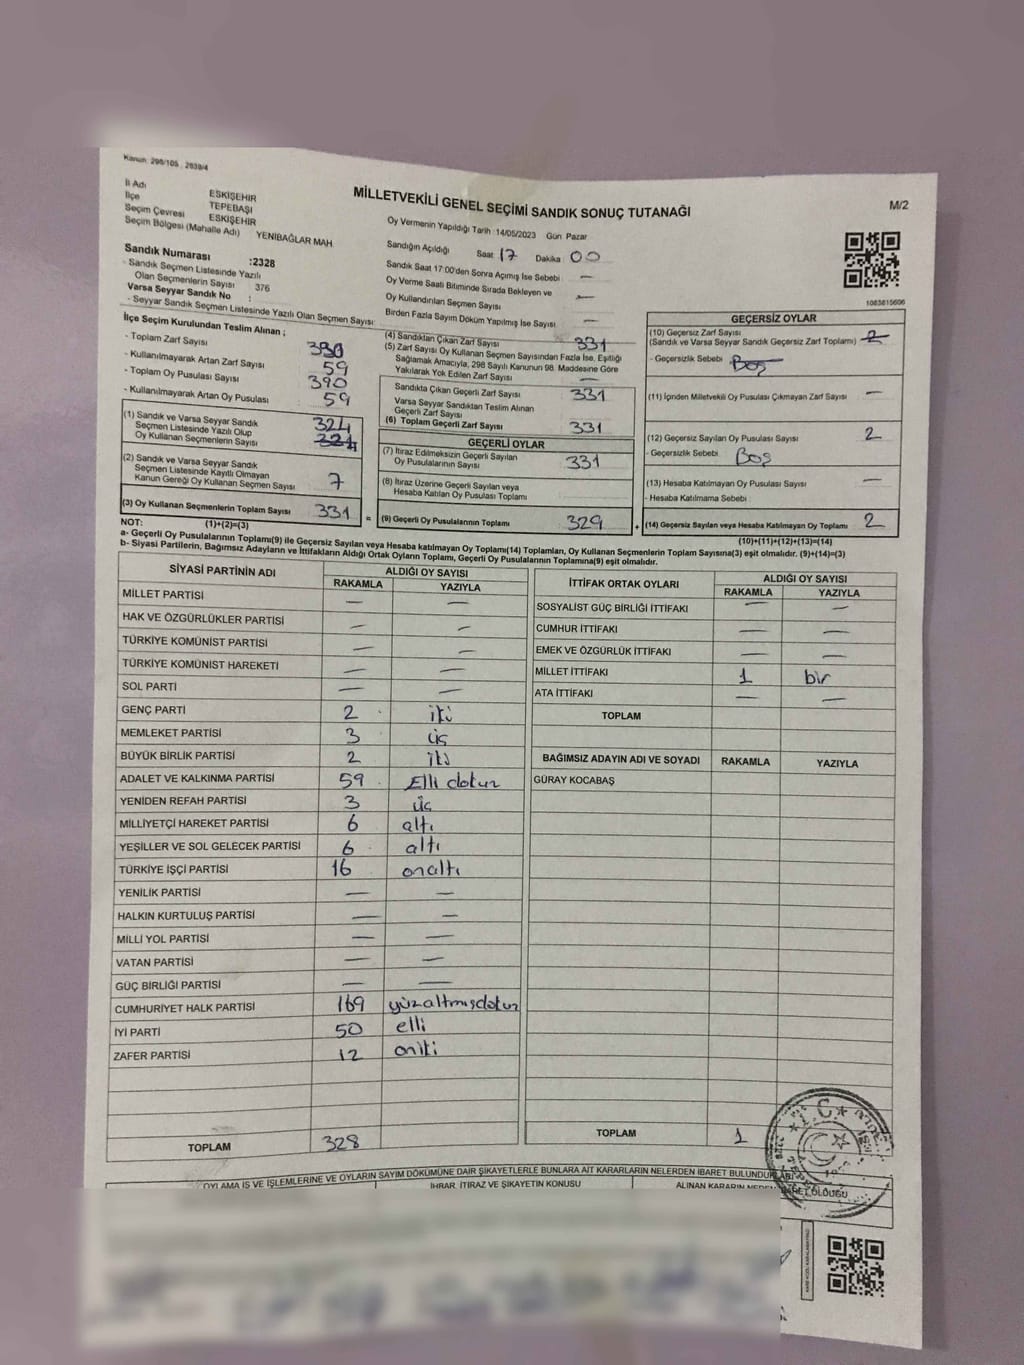 Kanun: 298/105 , 2839/4
MİLLETVEKİLİ GENEL SEÇİMİ SANDIK SONUÇ TUTANAĞI
M/2
İl Adı ESKİŞEHİR
İlçe TEPEBAŞI
Seçim Çevresi ESKİŞEHİR
Seçim Bölgesi (Mahalle Adı) YENİBAĞLAR MAH
Sandık Numarası :2328
- Sandık Seçmen Listesinde Yazılı
Olan Seçmenlerin Sayısı 376
Varsa Seyyar Sandık No :
- Seyyar Sandık Seçmen Listesinde Yazılı Olan Seçmen Sayısı:
Oy Vermenin Yapıldığı Tarih :14/05/2023 Gün Pazar
Sandığın Açıldığı Saat 17 Dakika 00
Sandık Saat 17:00'den Sonra Açımış İse Sebebi : —
Oy Verme Saati Bitiminde Sırada Bekleyen ve
Oy Kullandırılan Seçmen Sayısı —
Birden Fazla Sayım Döküm Yapılmış İse Sayısı : —
1083615606
İlçe Seçim Kurulundan Teslim Alınan ;
- Toplam Zarf Sayısı 390
- Kullanılmayarak Artan Zarf Sayısı 59
- Toplam Oy Pusulası Sayısı 390
- Kullanılmayarak Artan Oy Pusulası 59
(1) Sandık ve Varsa Seyyar Sandık 324
Seçmen Listesinde Yazılı Olup
Oy Kullanan Seçmenlerin Sayısı
(2) Sandık ve Varsa Seyyar Sandık
Seçmen Listesinde Kayıtlı Olmayan
Kanun Gereği Oy Kullanan Seçmen Sayısı 7
(3) Oy Kullanan Seçmenlerin Toplam Sayısı 331
(1)+(2)=(3)
(4) Sandıktan Çıkan Zarf Sayısı 331
(5) Zarf Sayısı Oy Kullanan Seçmen Sayısından Fazla İse, Eşitliği
Sağlamak Amacıyla, 298 Sayılı Kanunun 98. Maddesine Göre
Yakılarak Yok Edilen Zarf Sayısı —
Sandıkta Çıkan Geçerli Zarf Sayısı 331
Varsa Seyyar Sandıktan Teslim Alınan
Geçerli Zarf Sayısı
(6) Toplam Geçerli Zarf Sayısı 331
GEÇERLİ OYLAR
(7) İtiraz Edilmeksizin Geçerli Sayılan
Oy Pusulalarının Sayısı 331
(8) İtiraz Üzerine Geçerli Sayılan veya
Hesaba Katılan Oy Pusulası Toplamı
= (9) Geçerli Oy Pusulalarının Toplamı 329
GEÇERSİZ OYLAR
(10) Geçersiz Zarf Sayısı
(Sandık ve Varsa Seyyar Sandık Geçersiz Zarf Toplamı) 2
- Geçersizlik Sebebi Boş
(11) İçinden Milletvekili Oy Pusulası Çıkmayan Zarf Sayısı —
(12) Geçersiz Sayılan Oy Pusulası Sayısı 2
- Geçersizlik Sebebi Boş
(13) Hesaba Katılmayan Oy Pusulası Sayısı —
- Hesaba Katılmama Sebebi
+ (14) Geçersiz Sayılan veya Hesaba Katılmayan Oy Toplamı 2
(10)+(11)+(12)+(13)=(14)
NOT:
a- Geçerli Oy Pusulalarının Toplamı(9) ile Geçersiz Sayılan veya Hesaba katılmayan Oy Toplamı(14) Toplamları, Oy Kullanan Seçmenlerin Toplam Sayısına(3) eşit olmalıdır. (9)+(14)=(3)
b- Siyasi Partilerin, Bağımsız Adayların ve İttifakların Aldığı Ortak Oyların Toplamı, Geçerli Oy Pusulalarının Toplamına(9) eşit olmalıdır.
SİYASİ PARTİNİN ADI ALDIĞI OY SAYISI
RAKAMLA YAZIYLA
MİLLET PARTİSİ — —
HAK VE ÖZGÜRLÜKLER PARTİSİ — —
TÜRKİYE KOMÜNİST PARTİSİ — —
TÜRKİYE KOMÜNİST HAREKETİ — —
SOL PARTİ — —
GENÇ PARTİ 2 iki
MEMLEKET PARTİSİ 3 üç
BÜYÜK BİRLİK PARTİSİ 2 iki
ADALET VE KALKINMA PARTİSİ 59 Elli dokuz
YENİDEN REFAH PARTİSİ 3 üç
MİLLİYETÇİ HAREKET PARTİSİ 6 altı
YEŞİLLER VE SOL GELECEK PARTİSİ 6 altı
TÜRKİYE İŞÇİ PARTİSİ 16 onaltı
YENİLİK PARTİSİ — —
HALKIN KURTULUŞ PARTİSİ — —
MİLLİ YOL PARTİSİ — —
VATAN PARTİSİ — —
GÜÇ BİRLİĞİ PARTİSİ — —
CUMHURİYET HALK PARTİSİ 169 yüzaltmışdokuz
İYİ PARTİ 50 elli
ZAFER PARTİSİ 12 oniki
TOPLAM 328
İTTİFAK ORTAK OYLARI ALDIĞI OY SAYISI
RAKAMLA YAZIYLA
SOSYALİST GÜÇ BİRLİĞİ İTTİFAKI — —
CUMHUR İTTİFAKI — —
EMEK VE ÖZGÜRLÜK İTTİFAKI — —
MİLLET İTTİFAKI 1 bir
ATA İTTİFAKI — —
TOPLAM
BAĞIMSIZ ADAYIN ADI VE SOYADI RAKAMLA YAZIYLA
GÜRAY KOCABAŞ
TOPLAM 1
T.C.
OYLAMA İŞ VE İŞLEMLERİNE VE OYLARIN SAYIM DÖKÜMÜNE DAİR ŞİKAYETLERLE BUNLARA AİT KARARLARIN NELERDEN İBARET BULUNDUKLARI
İHBAR, İTİRAZ VE ŞİKAYETİN KONUSU
ALINAN KARARIN NEDEN İBARET OLDUĞU